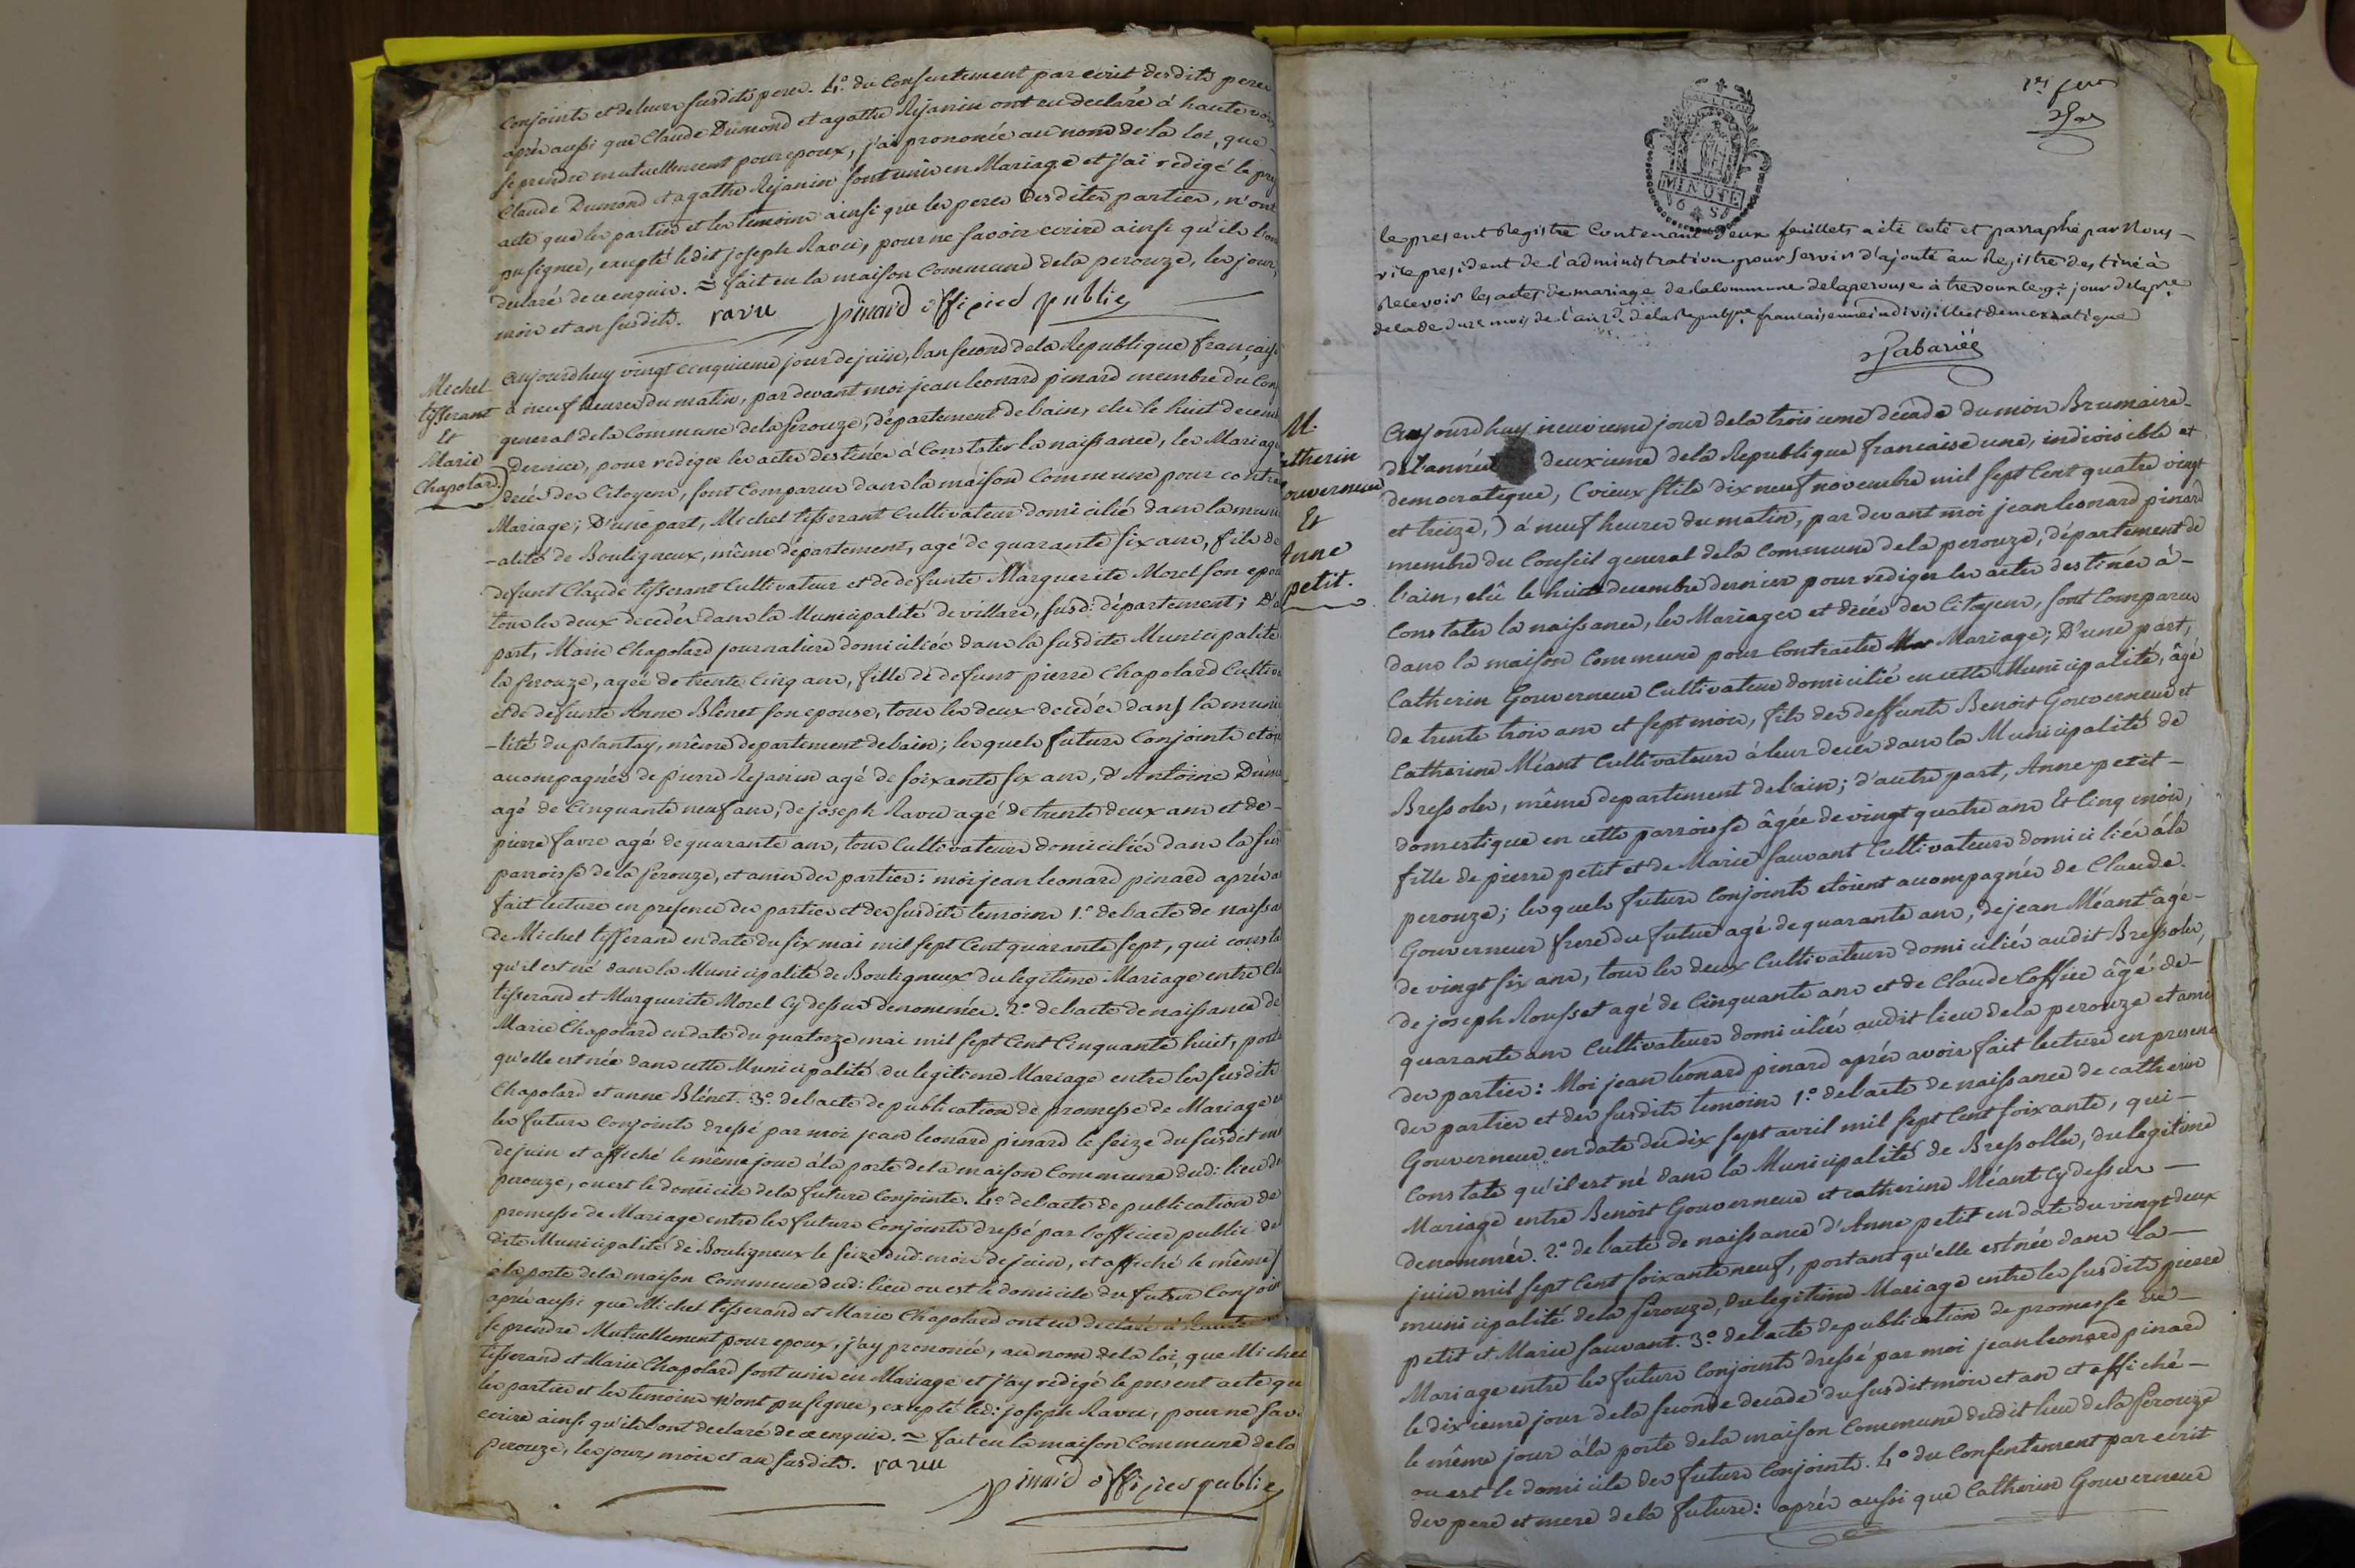 conjoints et de leurs susdits peres. 4.° du Consentement par ecrit desdits peres
après aussi que Claude Dumond et agathe Rejanin ont eu declaré à haute voix
se prendre mutuellement pour epoux, j'ai prononcée au nom de la loi, que
Claude Dumond et agathe Rejanin sont unis en Mariage et j'ai redigé le pres
acte que les parties et les temoins ainsi que les peres desdites parties, n'ont
pu signer, excepté ledit joseph Ravu, pour ne savoir ecrire ainsi qu'ils l'ont
declaré de ce enquis. = fait en la maison Commune de la perouze, les jour,
mois et an susdits. ravu pinard officier public
Michel
tisserant
Et
Marie
Chapolard
aujourdhuy vingt cinquieme jour de juin, l'an second de la Republique français
à neuf heures du matin, par devant moi jean leonard pinard membre du Con
general de la Commune de la perouze, département de l'ain, elu le huit decem
Dernier, pour rediger les actes destinés à Constater la naissance, les Mariag
decès des Citoyens, sont Comparus dans la maison Commune pour contra
Mariage; D'une part, Michel tisserant Cultivateur domicilié dans la munic
-alité de Bouligneux, même département, agé de quarante six ans, fils de
defunt Claude tisserant Cultivateur et de defunte Marguerite Morel son epou
tous les deux decedés dans la Municipalité de villars, susd: département; D'a
part, Marie Chapolard journaliere domiciliée dans la susdite Municipalité
la perouze, agée de trente Cinq ans, fille de defunt pierre Chapolard Cultiv
et de defunte Anne Blénet son epouse, tous les deux decedés dans la muni
-lité du plantay, même departement de l'ain; lesquels futurs Conjoints etoi
accompagnés de pierre Rejanin agé de soixante six ans, d'Antoine Dum
agé de Cinquante neuf ans, de joseph Ravu agé de trente deux ans et de-
pierre favre agé de quarante ans, tous Cultivateurs domiciliés dans la sus
parroisse de la perouze, et amis des parties: moi jean leonard pinard après a
fait lecture en presence des parties et des susdits temoins 1.° de l'acte de naissa
de Michel tisserand en date du six mai mil sept Cent quarante sept, qui consta
qu'il est né dans la Municipalité de Bouligneux du legitime Mariage entre Cla
tisserand et Marguerite Morel Cy dessus denommés. 2.° de l'acte de naissance de
Marie Chapolard en date du quatorze mai mil sept Cent Cinquante huit, porta
qu'elle est née dans cette Municipalité du legitime Mariage entre les susdits
Chapolard et anne Blénet. 3.° de l'acte de publication de promesse de Mariage en
les futurs Conjoints dressé par moi jean leonard pinard le seize du susdit m
de juin et affiché le même jour à la porte de la maison Commune dud: lieu de
perouze, ou est le domicile de la future Conjointe. 4.° de l'acte de publication de
promesse de Mariage entre les futurs Conjoints dressé par l'officier public de
dite Municipalité de Bouligneux le seize dud: mois de juin, et affiché le même j
à la porte de la maison Commune dud: lieu ou est le domicile du futur Conjoint
après aussi que Michel tisserand et Marie Chapolard ont eu declaré à haute
se prendre Mutuellement pour epoux, j'ay prononcée, au nom de la loi, que Michel
tisserand et Marie Chapolard sont unis en Mariage et j'ay redigé le present acte que
les parties et les temoins n'ont pu signer, excepté led: joseph Ravu, pour ne savo
ecrire ainsi qu'ils l'ont declaré de ce enquis. = fait en la maison Commune de la
perouze, les jours, mois et an susdits. ravu
pinard officier public
MINUTE
6 S
le present Registre Contenant deux feuillets a été coté et parraphé par Nous-
vice president de l'administration pour servir d'ajouté au Registre destiné à
Recevoir les actes de mariage de la commune de laperouse à trevoux le 9.e jour de la p.re
decade du 2.e mois de l'an 2.e de la Republique francaise une indivisible et democratique
M.
atherin
ouverneur
Et
Anne
petit.
Aujourdhuy neuvieme jour de la troisieme décade du mois Brumaire-
de l'année deuxieme de la Republique francaise une, indivisible et
democratique, (vieux stile dix neuf novembre mil sept Cent quatre vingt
et treize,) à neuf heures du matin, par devant moi jean leonard pinard
membre du Conseil general de la Commune de la perouze, département de
l'ain, elû le huit decembre dernier pour rediger les actes destinés à-
Constater la naissance, les Mariages et décès des Citoyens, sont Comparus
dans la maison Commune pour Contracter Mariage; D'une part,
Catherin Gouverneur Cultivateur domicilié en cette Municipalité, âgé
de trente trois ans et sept mois, fils des deffunts Benoit Gouverneur et
Catherine Méant Cultivateurs à leur decès dans la Municipalité de
Bressoles, même departement de l'ain; d'autre part, Anne petit-
domestique en cette parroisse âgée de vingt quatre ans Et Cinq mois,
fille de pierre petit et de Marie sauvant Cultivateurs domiciliés à la
perouze; lesquels futurs Conjoints etoient accompagnés de Claude
Gouverneur frere du futur agé de quarante ans, de jean Méant agé-
de vingt six ans, tous les deux Cultivateurs domiciliés audit Bressoles,
de joseph Rousset agé de Cinquante ans et de Claude Coffier âgé de-
quarante ans Cultivateurs domiciliés audit lieu de la perouze et amis
des parties: Moi jean leonard pinard après avoir fait lecture en presence
des parties et des susdits temoins 1.° de l'acte de naissance de catherin
Gouverneur en date du dix sept avril mil sept Cent soixante, qui-
Constate qu'il est né dans la Municipalité de Bressolles, du legitime
Mariage entre Benoit Gouverneur et catherine Méant Cy dessus-
denommés. 2.° de l'acte de naissance d'Anne petit en date du vingt deux
juin mil sept Cent soixante neuf, portant qu'elle est née dans la-
municipalité de la perouze, du legitime Mariage entre les susdits pierre
petit et Marie sauvant. 3.° de l'acte de publication de promesse de-
Mariage entre les futurs Conjoints dressé par moi jean leonard pinard
le dixieme jour de la seconde decade du susdit mois et an et affiché-
le même jour à la porte de la maison Commune dudit lieu de la perouze
ou est le domicile des futurs Conjoints. 4.° du Consentement par ecrit
des pere et mere de la future: après aussi que Catherin Gouverneur